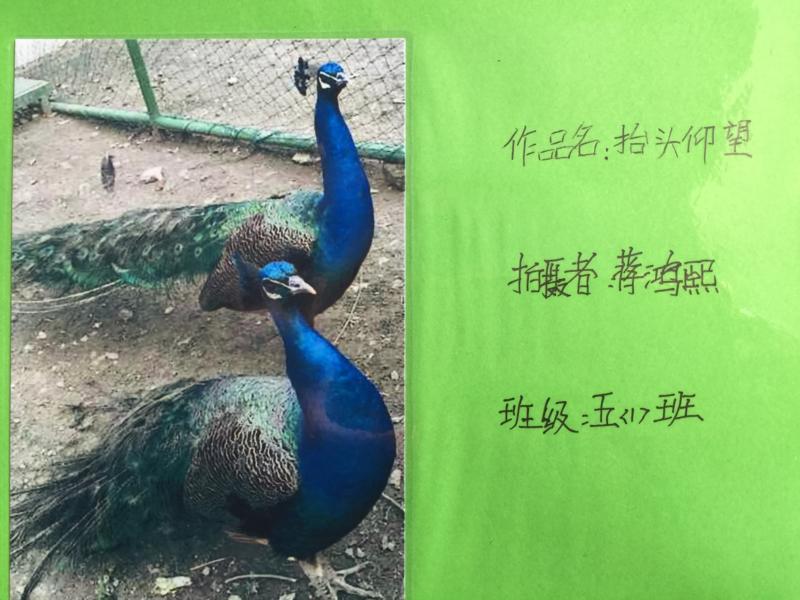 作品名:抬头仰望
拍摄者:蒋鸿熙
班级:五<1>班